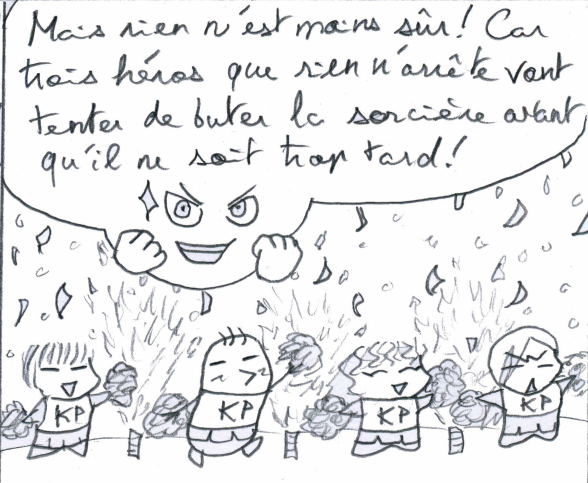 Mais rien n'est moins sûr! Car
trois héros que rien n'arrête vont
tenter de buter la sorcière avant
qu'il ne soit trop tard!
KP
KP
KP
KP